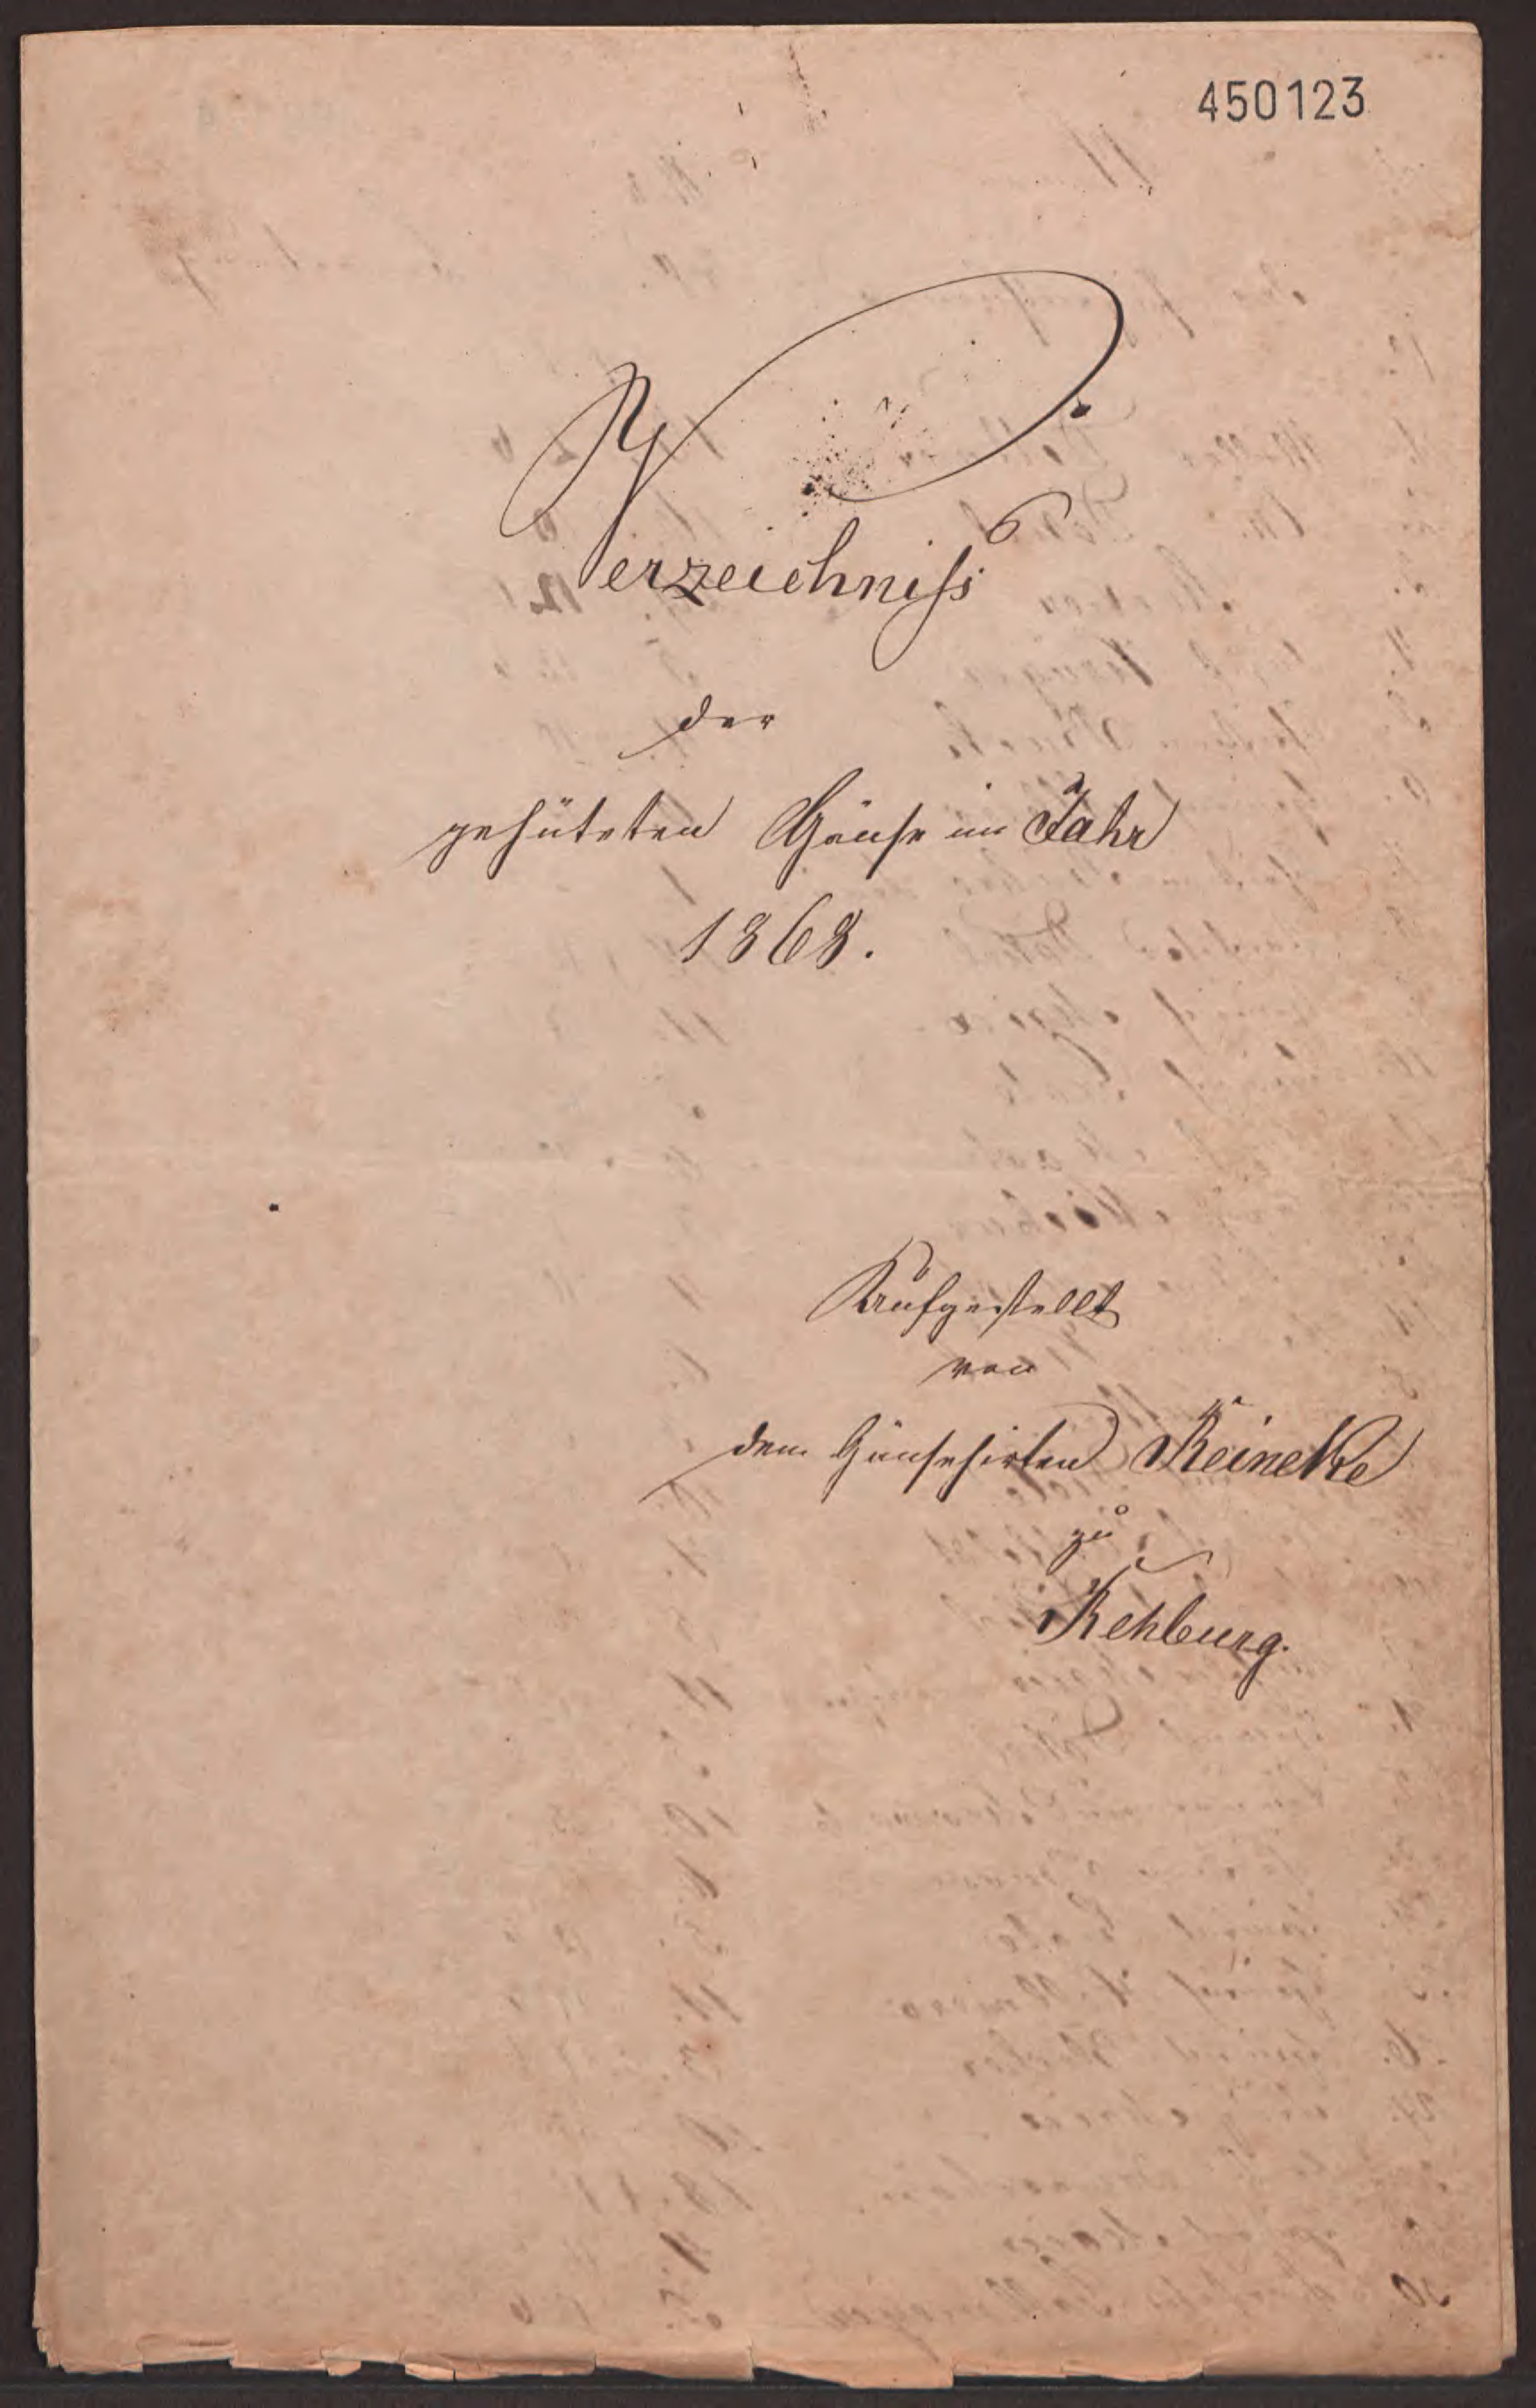 450123
Verzeichniss
der
gehüteten Gänse im Jahr
1868.
Aufgestellt
von
dem Gänsehirten Reineke
zu
Rehburg.